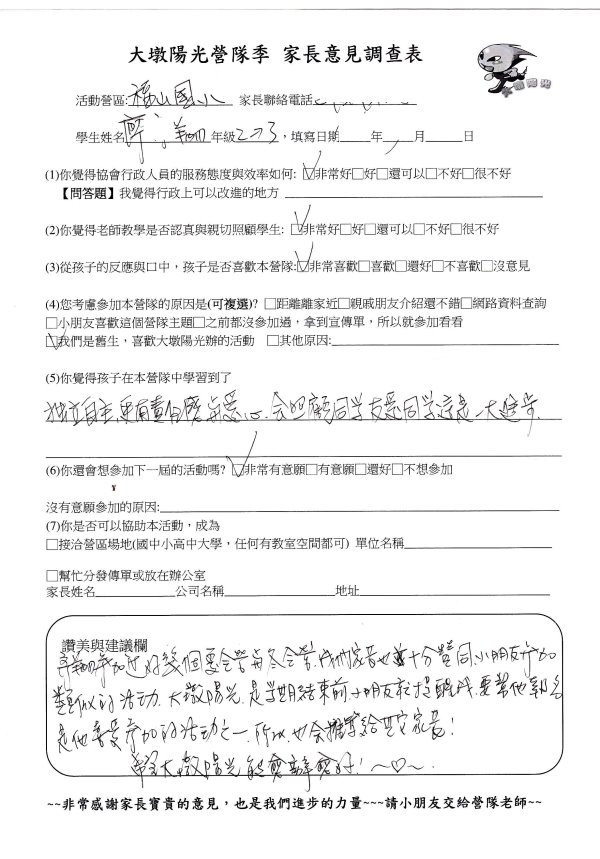 大墩陽光營隊季 家長意見調查表
大墩陽光
活動營區: 福山國小 家長聯絡電話
學生姓名 年級2→3,填寫日期 年 月 日
(1)你覺得協會行政人員的服務態度與效率如何: ☑非常好□好□還可以□不好□很不好
【問答題】我覺得行政上可以改進的地方
(2)你覺得老師教學是否認真與親切照顧學生: ☑非常好□好□還可以□不好□很不好
(3)從孩子的反應與口中,孩子是否喜歡本營隊:☑非常喜歡□喜歡□還好□不喜歡□沒意見
(4)您考慮參加本營隊的原因是(可複選)? □距離離家近□親戚朋友介紹還不錯□網路資料查詢
□小朋友喜歡這個營隊主題□之前都沒參加過,拿到宣傳單,所以就參加看看
☑我們是舊生,喜歡大墩陽光辦的活動 □其他原因:
(5)你覺得孩子在本營隊中學習到了
獨立自主,更有責任感與愛心,會照顧同學友愛同學這是一大進步.
(6)你還會想參加下一屆的活動嗎? ☑非常有意願□有意願□還好□不想參加
沒有意願參加的原因:
(7)你是否可以協助本活動,成為
□接洽營區場地(國中小高中大學,任何有教室空間都可) 單位名稱
□幫忙分發傳單或放在辦公室
家長姓名 公司名稱 地址
讚美與建議欄
參加過好幾個夏令營與冬令營.我們家長也十分贊同小朋友參加
類似的活動.大墩陽光.是學期結束前小朋友就提醒我.要幫他報名
是他喜愛參加的活動之一.所以也會推薦給其它家長!
希望大墩陽光能愈辦愈好!~♡~.
~~非常感謝家長寶貴的意見,也是我們進步的力量~~~請小朋友交給營隊老師~~